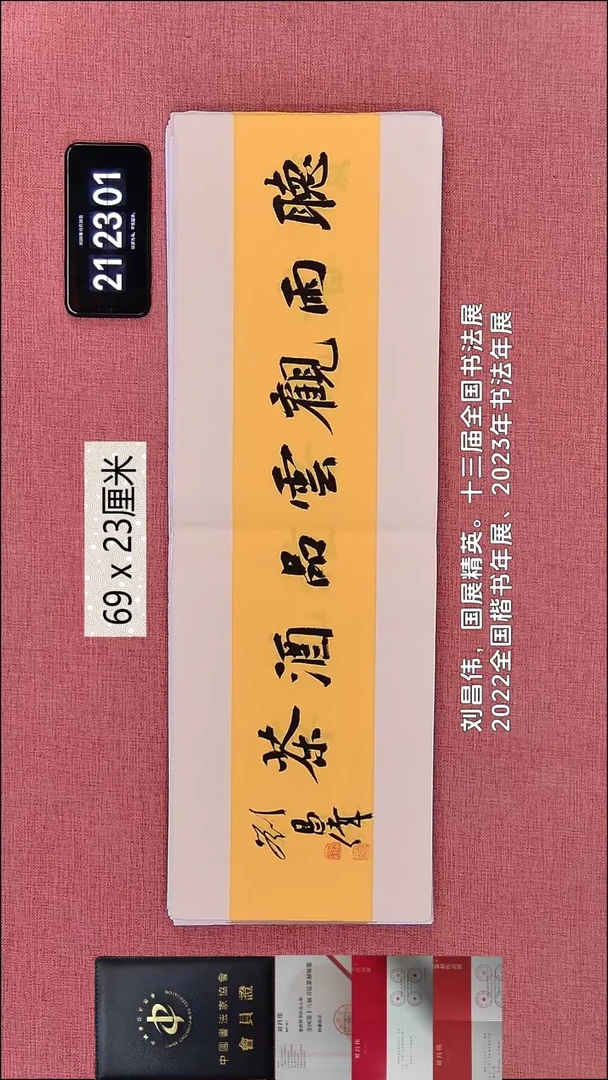 21 23 01
69 x 23厘米
聽雨觀雲品酒茶
劉昌偉
刘昌伟，国展精英。十三届全国书法展
2022全国楷书年展、2023年书法年展
中國書法家協會
會員證